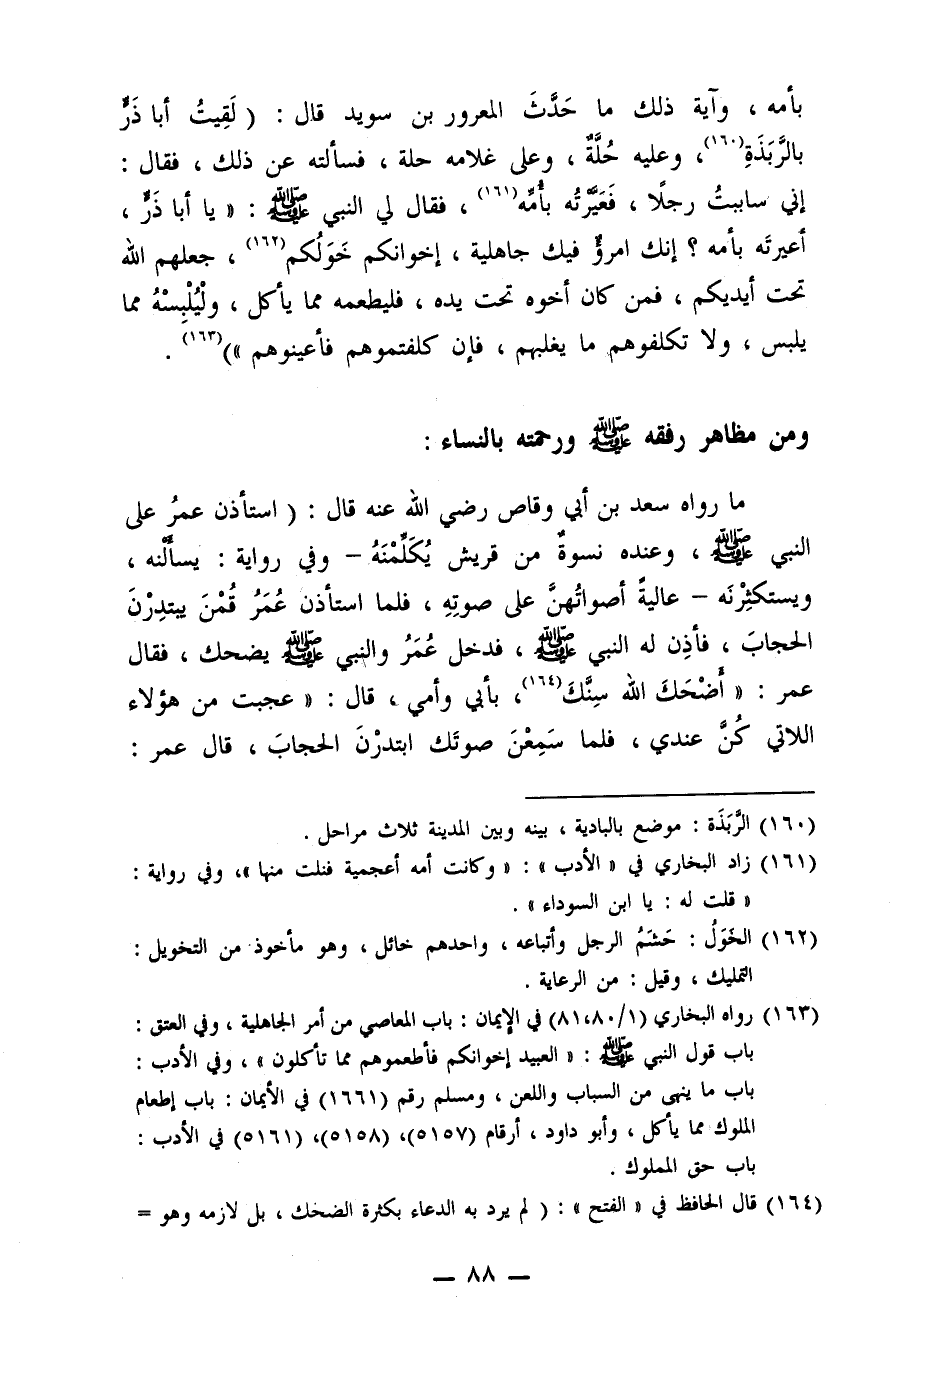 بأمه ، وآية ذلك ما حَدَّثَ المعرور بن سويد قال : ( لَقِيتُ أبا ذَرٍّ
بالرَّبَذَةِ(١٦٠)، وعليه حُلَّةٌ ، وعلى غلامه حلة ، فسألته عن ذلك ، فقال :
إني ساببتُ رجلًا ، فَعَيَّرْتُه بأُمِّه(١٦١) ، فقال لي النبي ﷺ : « يا أبا ذَرٍّ ،
أعيرتَه بأمه ؟ إنك امرؤٌ فيك جاهلية ، إخوانكم خَوَلُكم(١٦٢) ، جعلهم الله
تحت أيديكم ، فمن كان أخوه تحت يده ، فليطعمه مما يأكل ، ولْيُلْبِسْهُ مما
يلبس ، ولا تكلفوهم ما يغلبهم ، فإن كلفتموهم فأعينوهم »)(١٦٣) .
ومن مظاهر رفقه ﷺ ورحمته بالنساء :
ما رواه سعد بن أبي وقاص رضي الله عنه قال : ( استأذن عمرُ على
النبي ﷺ ، وعنده نسوةٌ من قريش يُكَلِّمْنَهُ – وفي رواية : يسأَلْنه ،
ويستكثِرْنَه – عاليةً أصواتُهنَّ على صوتِهِ ، فلما استأذن عُمَرُ قُمْنَ يبتدِرْنَ
الحجابَ ، فأذِن له النبي ﷺ ، فدخل عُمَرُ والنبي ﷺ يضحك ، فقال
عمر : « أَضْحَكَ الله سِنَّكَ(١٦٤)، بأبي وأمي ، قال : « عجبت من هؤلاء
اللاتي كُنَّ عندي ، فلما سَمِعْنَ صوتَك ابتدرْنَ الحجابَ ، قال عمر :
(١٦٠) الرَّبَذَة : موضع بالبادية ، بينه وبين المدينة ثلاث مراحل .
(١٦١) زاد البخاري في « الأدب » : « وكانت أمه أعجمية فنلت منها »، وفي رواية :
« قلت له : يا ابن السوداء » .
(١٦٢) الخَوَلُ : حَشَمُ الرجل وأتباعه ، واحدهم خائل ، وهو مأخوذ من التخويل :
التمليك ، وقيل : من الرعاية .
(١٦٣) رواه البخاري (١/٨٠،٨١) في الإيمان : باب المعاصي من أمر الجاهلية ، وفي العتق :
باب قول النبي ﷺ : « العبيد إخوانكم فأطعموهم مما تأكلون » ، وفي الأدب :
باب ما ينهى من السباب واللعن ، ومسلم رقم (١٦٦١) في الأيمان : باب إطعام
الملوك مما يأكل ، وأبو داود ، أرقام (٥١٥٧)، (٥١٥٨)، (٥١٦١) في الأدب :
باب حق المملوك .
(١٦٤) قال الحافظ في « الفتح » : ( لم يرد به الدعاء بكثرة الضحك ، بل لازمه وهو =
— ٨٨ —